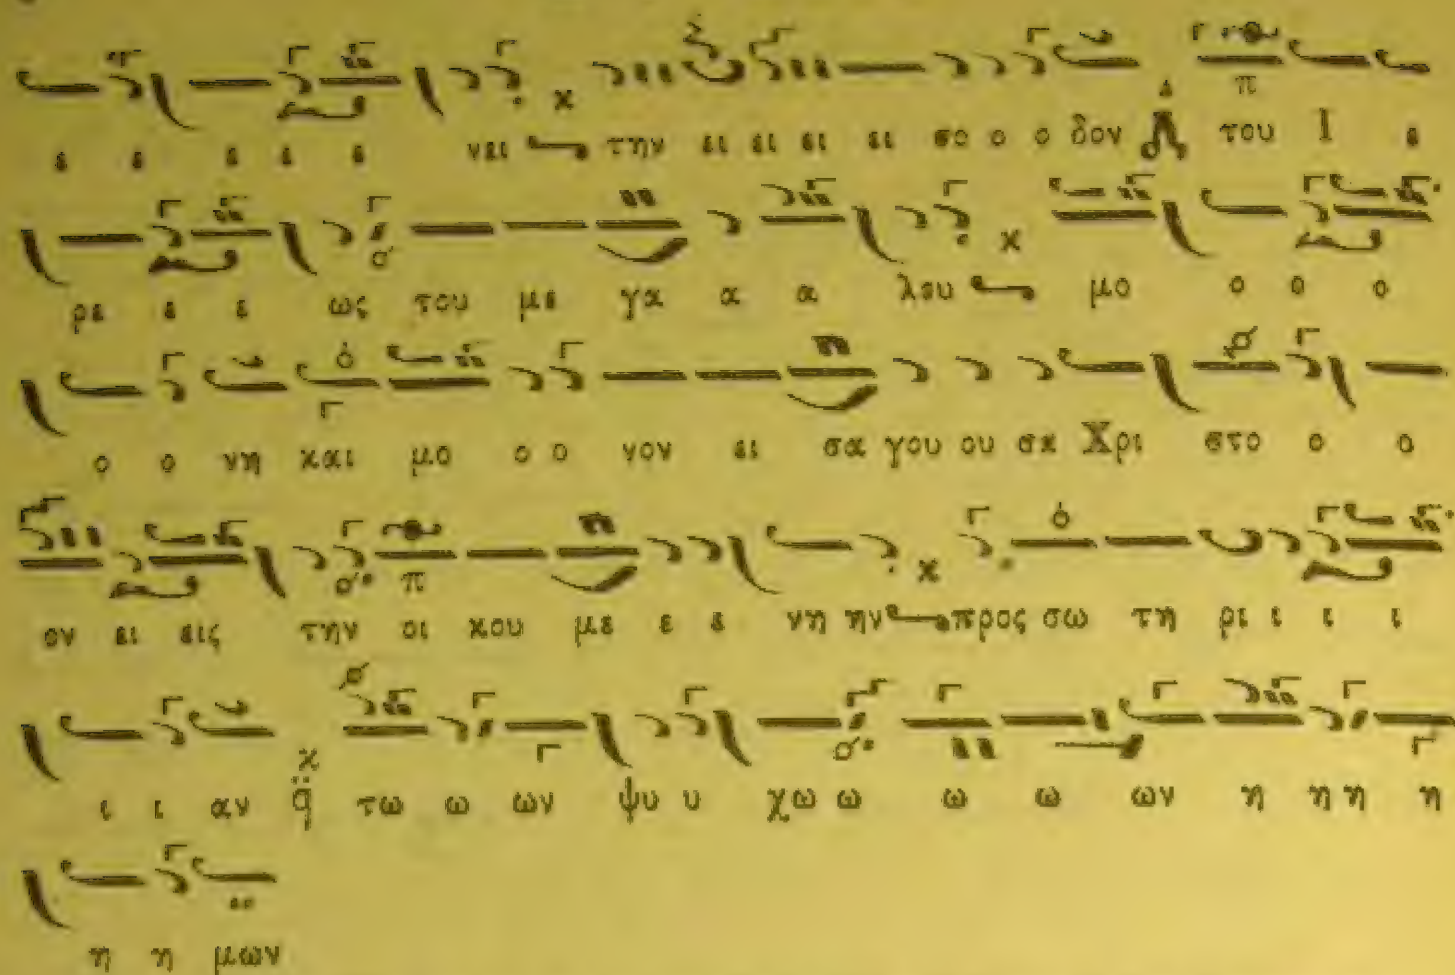 ε ε ε ε ε νει την ει ει ει ει σο ο ο δον του Ι ε
ρε ε ε ως του με γα α α λου μο ο ο ο
ο ο νη και μο ο ο νον ει σα γου ου σα Χρι στο ο ο
ον ει εις την οι κου με ε ε νη ην προς σω τη ρι ι ι ι
ι ι αν q̈ τω ω ων ψυ υ χω ω ω ω ων η η η η
η η μων